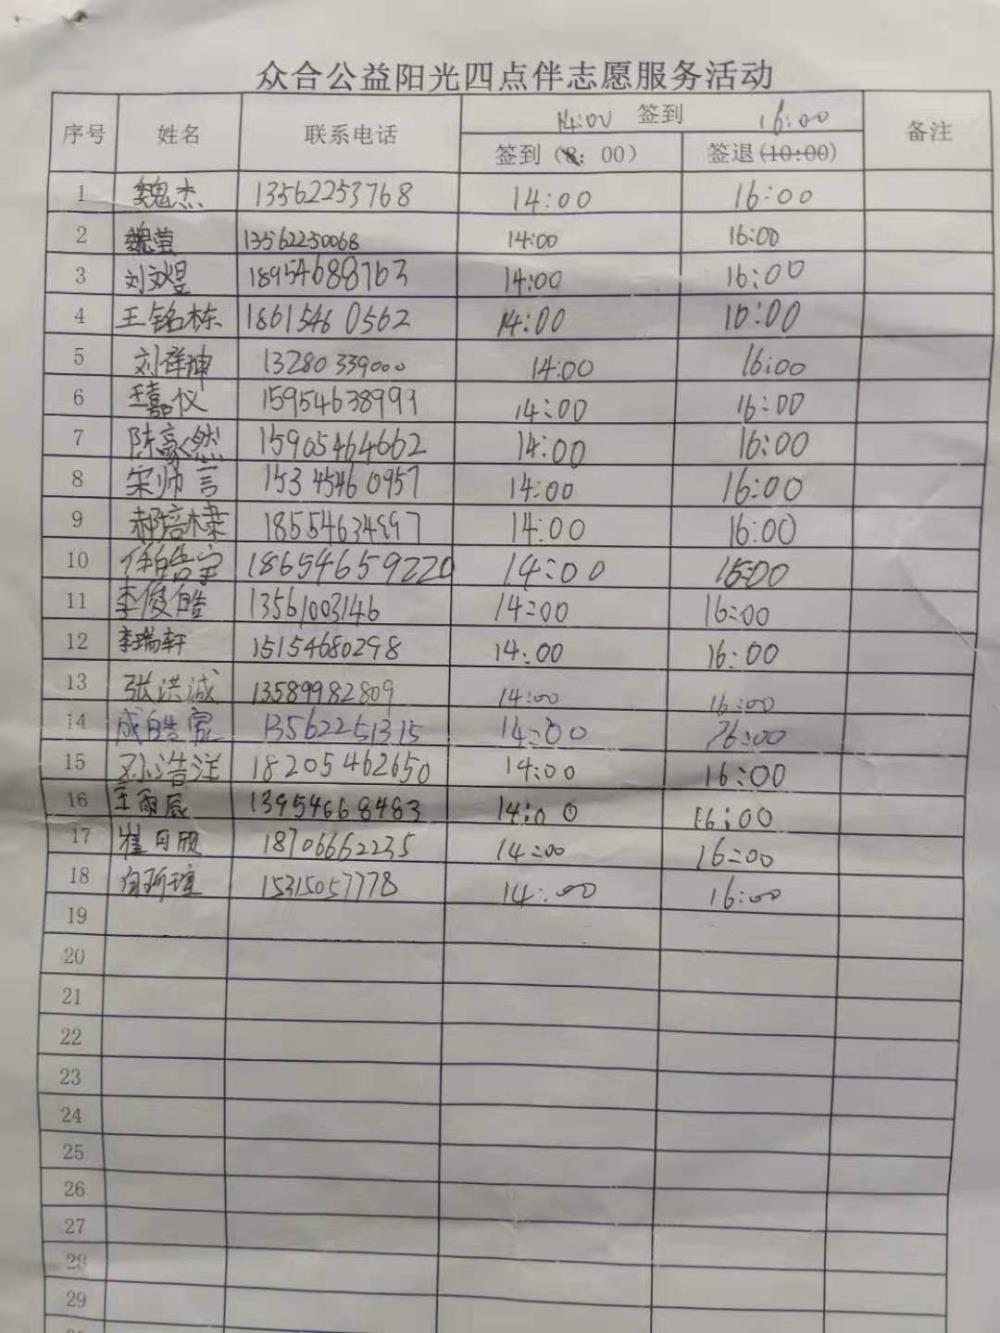 众合公益阳光四点伴志愿服务活动
序号 姓名 联系电话 14:00 签到 16:00 备注
签到（8：00） 签退（10:00）
1 魏杰 13562253768 14:00 16:00
2 魏莹 13562250068 14:00 16:00
3 刘文煜 18954688763 14:00 16:00
4 王铭栋 18615460562 14:00 16:00
5 刘祥坤 13280339000 14:00 16:00
6 王嘉仪 15954638999 14:00 16:00
7 陈豪然 15965464662 14:00 16:00
8 宋帅言 15345460957 14:00 16:00
9 郝培棣 18554634897 14:00 16:00
10 任皓宇 186546659220 14:00 16:00
11 李俊皓 13561003146 14:00 16:00
12 李瑞轩 15154680298 14:00 16:00
13 张洪诚 13589982809 14:00 16:00
14 成皓宸 13562251315 14:00 16:00
15 孙浩洋 18205462650 14:00 16:00
16 王雨辰 13954668483 14:00 16:00
17 崔日欣 18706662235 14:00 16:00
18 15315057778 14:00 16:00
19
20
21
22
23
24
25
26
27
28
29